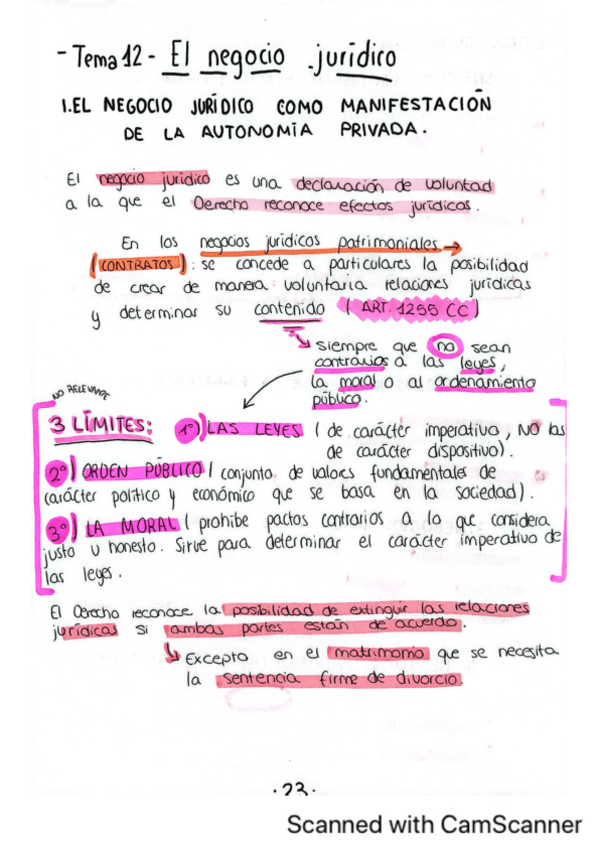 - Tema 12 - El negocio jurídico
1.EL NEGOCIO JURÍDICO COMO MANIFESTACIÓN
DE LA AUTONOMÍA PRIVADA.
El negocio jurídico es una declaración de voluntad
a la que el Derecho reconoce efectos jurídicos.
En los negocios jurídicos patrimoniales →
(CONTRATOS): se concede a particulares la posibilidad
de crear de manera voluntaria relaciones jurídicas
y determinar su contenido (ART. 1255 CC)
siempre que no sean
contrarios a las leyes,
la moral o al ordenamiento
público.
NO RELEVANTE
3 LÍMITES: 1º) LAS LEYES (de carácter imperativo, NO las
de carácter dispositivo).
2º) ORDEN PÚBLICO (conjunto de valores fundamentales de
carácter político y económico que se basa en la sociedad).
3º) LA MORAL (prohibe pactos contrarios a lo que considera
justo u honesto. Sirve para determinar el carácter imperativo de
las leyes.
El Derecho reconoce la posibilidad de extinguir las relaciones
jurídicas si ambas partes están de acuerdo.
Excepto en el matrimonio que se necesita
la sentencia firme de divorcio.
·23·
Scanned with CamScanner